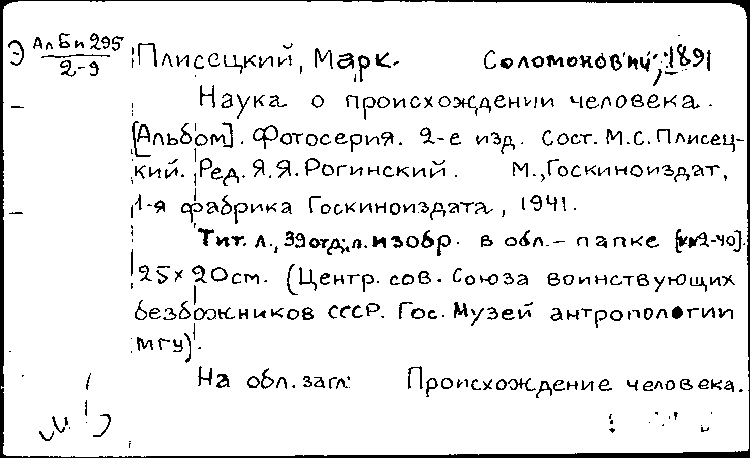 Э АлБп 295
2-9
Плисецкий, Марк. Соломонович, 1891
Наука о происхождении человека.
[Альбом]. Фотосерия. 2-е изд. Сост. М.С. Плисец-
кий. Ред. Я.Я. Рогинский. М., Госкиноиздат,
1-я фабрика Госкиноиздата, 1941.
Тит. л., 39 отд. л. изобр. в обл.-папке [№№2-40].
25×20см. (Центр. сов. Союза воинствующих
безбожников СССР. Гос. Музей антропологии
МГУ).
На обл. загл: Происхождение человека.